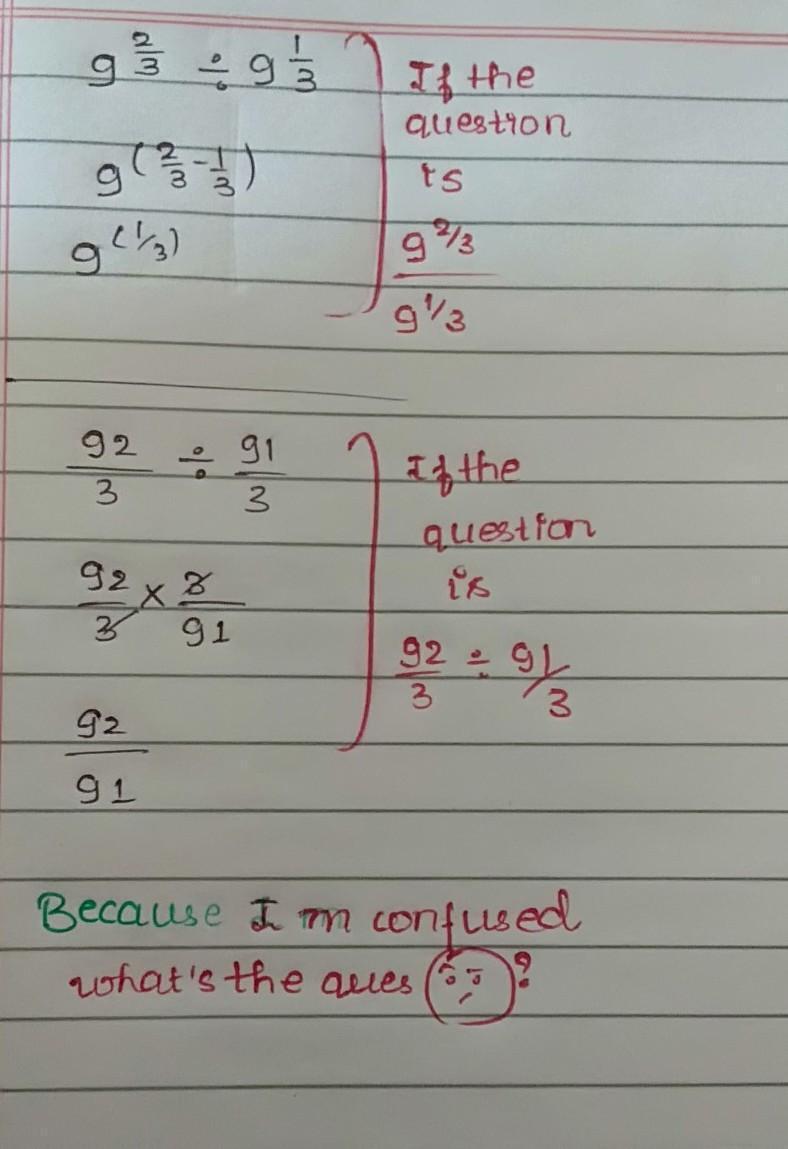 9^(2/3) ÷ 9^(1/3)
9^(2/3 - 1/3)
9^(1/3)
If the
question
is
9^(2/3)
9^(1/3)
92/3 ÷ 91/3
92/3 × 3/91
92
91
If the
question
is
92/3 ÷ 91/3
Because I m confused
what's the ques ?